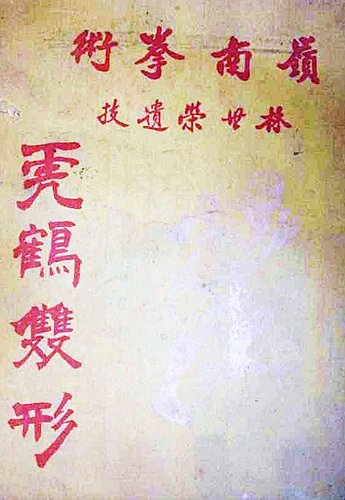 嶺南拳術
林世榮遺技
虎鶴雙形